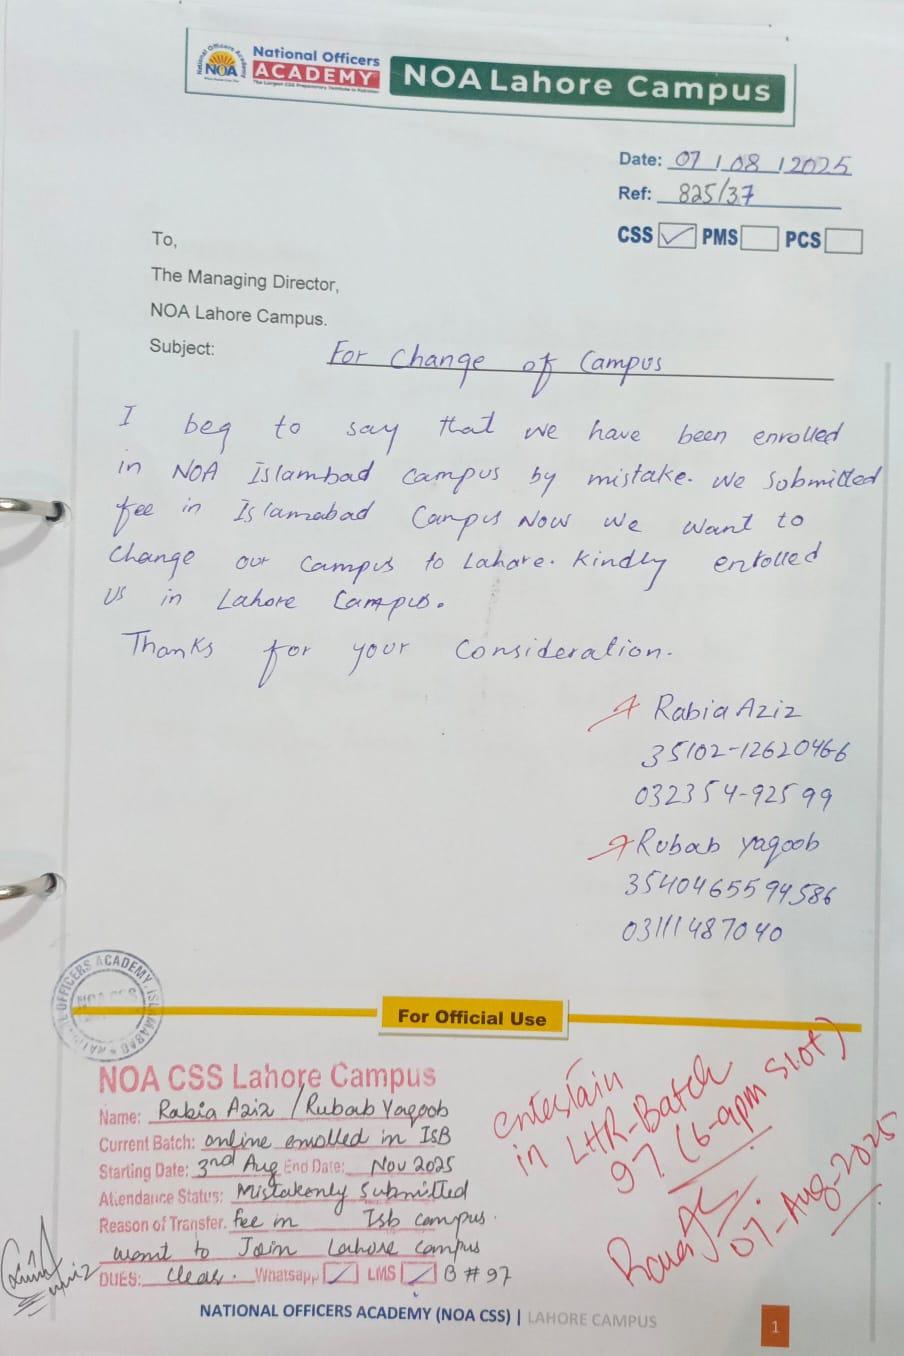 National Officers
ACADEMY
The Largest CSS Preparatory Institute in Pakistan
NOA
NOA Lahore Campus
Date: 07/08/2025
Ref: 825/37
CSS ✓ PMS PCS
To,
The Managing Director,
NOA Lahore Campus.
Subject: For Change of Campus
I beg to say that we have been enrolled
in NOA Islambad campus by mistake. We Submitted
fee in Islamabad Campus Now we want to
Change our campus to Lahore. Kindly enrolled
us in Lahore Campus.
Thanks for your Consideration.
Rabia Aziz
35102-12620466
032354-92599
Rubab yaqoob
3540465594586
03111487040
OFFICERS ACADEMY, ISLAMABAD
For Official Use
NOA CSS Lahore Campus
Name: Rabia Aziz / Rubab Yaqoob
Current Batch: online enrolled in ISB
Starting Date: 3rd Aug End Date: Nov 2025
Attendance Status: Mistakenly Submitted
Reason of Transfer. fee in Isb campus.
want to Join Lahore campus
DUES: Clear. Whatsapp ✓ LMS ✓ B # 97
entertain
in LHR-Batch
97 (6-9pm slot)
07-Aug-2025
NATIONAL OFFICERS ACADEMY (NOA CSS) | LAHORE CAMPUS
1